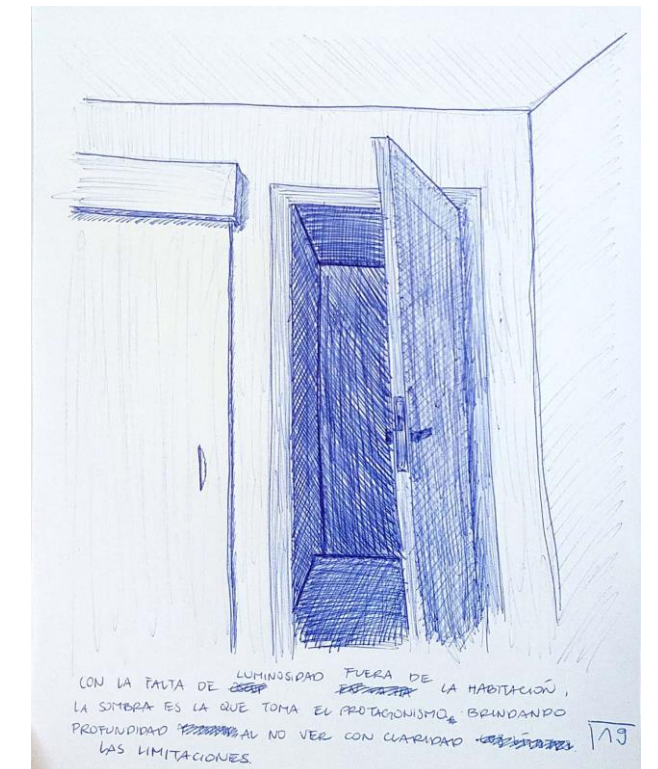 CON LA FALTA DE LUMINOSIDAD FUERA DE LA HABITACIÓN,
LA SOMBRA ES LA QUE TOMA EL PROTAGONISMO, BRINDANDO
PROFUNDIDAD AL NO VER CON CLARIDAD
LAS LIMITACIONES.
19